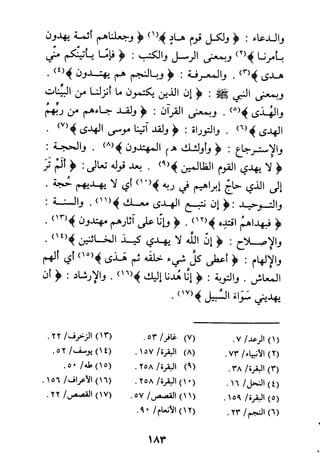 والدعاء : ﴿ ولكل قوم هاد ﴾(١) ﴿ وجعلناهم أئمة يهدون
بأمرنا ﴾(٢) وبمعنى الرسل والكتب : ﴿ فإمّا يأتينّكم منّي
هدى ﴾(٣) . والمعرفة : ﴿ وبالنجم هم يهتدون ﴾(٤) .
وبمعنى النبي ﷺ : ﴿ إن الذين يكتمون ما أنزلنا من البيّنات
والهُدَى ﴾(٥) . وبمعنى القرآن : ﴿ ولقد جاءهم من ربّهمُ
الهدى ﴾(٦) . والتوراة : ﴿ ولقد آتينا موسى الهدى ﴾(٧) .
والإسترجاع : ﴿ وأولئك هم المهتدون ﴾(٨) . والحجة :
﴿ لا يهدي القوم الظالمين ﴾(٩) . بعد قوله تعالى : ﴿ ألَمْ تَرَ
إلى الذي حاجّ إبراهيم في ربه ﴾(١٠) أي لا يهديهم حُجة .
والتوحيد : ﴿ إن نتبع الهدى معك ﴾(١١) . والسنة :
﴿ فبهداهم اقتده ﴾(١٢) . ﴿ وإنّا على آثارهم مهتدون ﴾(١٣) .
والإصلاح : ﴿ إنّ اللّه لا يهدي كيد الخائنين ﴾(١٤) .
والإلهام : ﴿ أعطى كلّ شيء خلقَه ثم هَدَى ﴾(١٥) أي ألهم
المعاش . والتوبة : ﴿ إنّا هُدنا إليك ﴾(١٦) . والإرشاد : ﴿ أن
يهديني سَوَاءَ السَّبيل ﴾(١٧) .
(١) الرعد/ ٧ .
(٢) الأنبياء/ ٧٣ .
(٣) البقرة/ ٣٨ .
(٤) النحل/ ١٦ .
(٥) البقرة/ ١٥٩ .
(٦) النجم/ ٢٣ .
(٧) غافر/ ٥٣ .
(٨) البقرة/ ١٥٧ .
(٩) البقرة/ ٢٥٨ .
(١٠) البقرة/ ٢٥٨ .
(١١) القصص/ ٥٧ .
(١٢) الأنعام/ ٩٠ .
(١٣) الزخرف/ ٢٢ .
(١٤) يوسف/ ٥٢ .
(١٥) طه/ ٥٠ .
(١٦) الأعراف/ ١٥٦ .
(١٧) القصص/ ٢٢ .
١٨٣